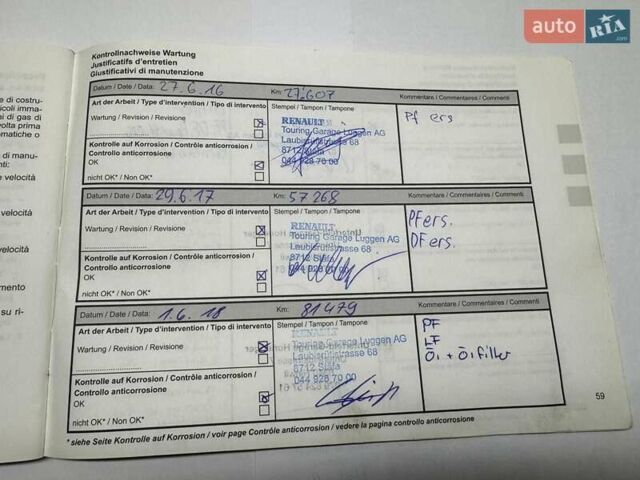 auto RIA.com
Kontrollnachweise Wartung
Justificatifs d'entretien
Giustificativi di manutenzione
Datum / Date / Data: 27.6.16 Km: 27.607 Kommentare / Commentaires / Commenti
Art der Arbeit / Type d'intervention / Tipo di intervento Stempel / Tampon / Tampone
Pf ers
Wartung / Revision / Revisione
RENAULT
Touring Garage Luggen AG
Laubisrütistrasse 68
8712 Stäfa
044 928 70 00
Kontrolle auf Korrosion / Contrôle anticorrosion /
Controllo anticorrosione
OK
nicht OK* / Non OK*
Datum / Date / Data: 29.6.17 Km: 57268 Kommentare / Commentaires / Commenti
Art der Arbeit / Type d'intervention / Tipo di intervento Stempel / Tampon / Tampone
PFers.
DFers.
Wartung / Revision / Revisione
RENAULT
Touring Garage Luggen AG
Laubisrütistrasse 68
8712 Stäfa
044 928 70 00
Kontrolle auf Korrosion / Contrôle anticorrosion /
Controllo anticorrosione
OK
nicht OK* / Non OK*
Datum / Date / Data: 1.6.18 Km: 81479 Kommentare / Commentaires / Commenti
Art der Arbeit / Type d'intervention / Tipo di intervento Stempel / Tampon / Tampone
PF
LF
Öl + Ölfilter
Wartung / Revision / Revisione
RENAULT
Touring Garage Luggen AG
Laubisrütistrasse 68
8712 Stäfa
044 928 70 00
Kontrolle auf Korrosion / Contrôle anticorrosion /
Controllo anticorrosione
OK
nicht OK* / Non OK*
* siehe Seite Kontrolle auf Korrosion / voir page Contrôle anticorrosion / vedere la pagina controllo anticorrosione
59
e di costru-
icoli imma-
di gas di
volta prima
tomatiche o
di manu-
enti:
velocità
velocità
velocità
mento
su ri-